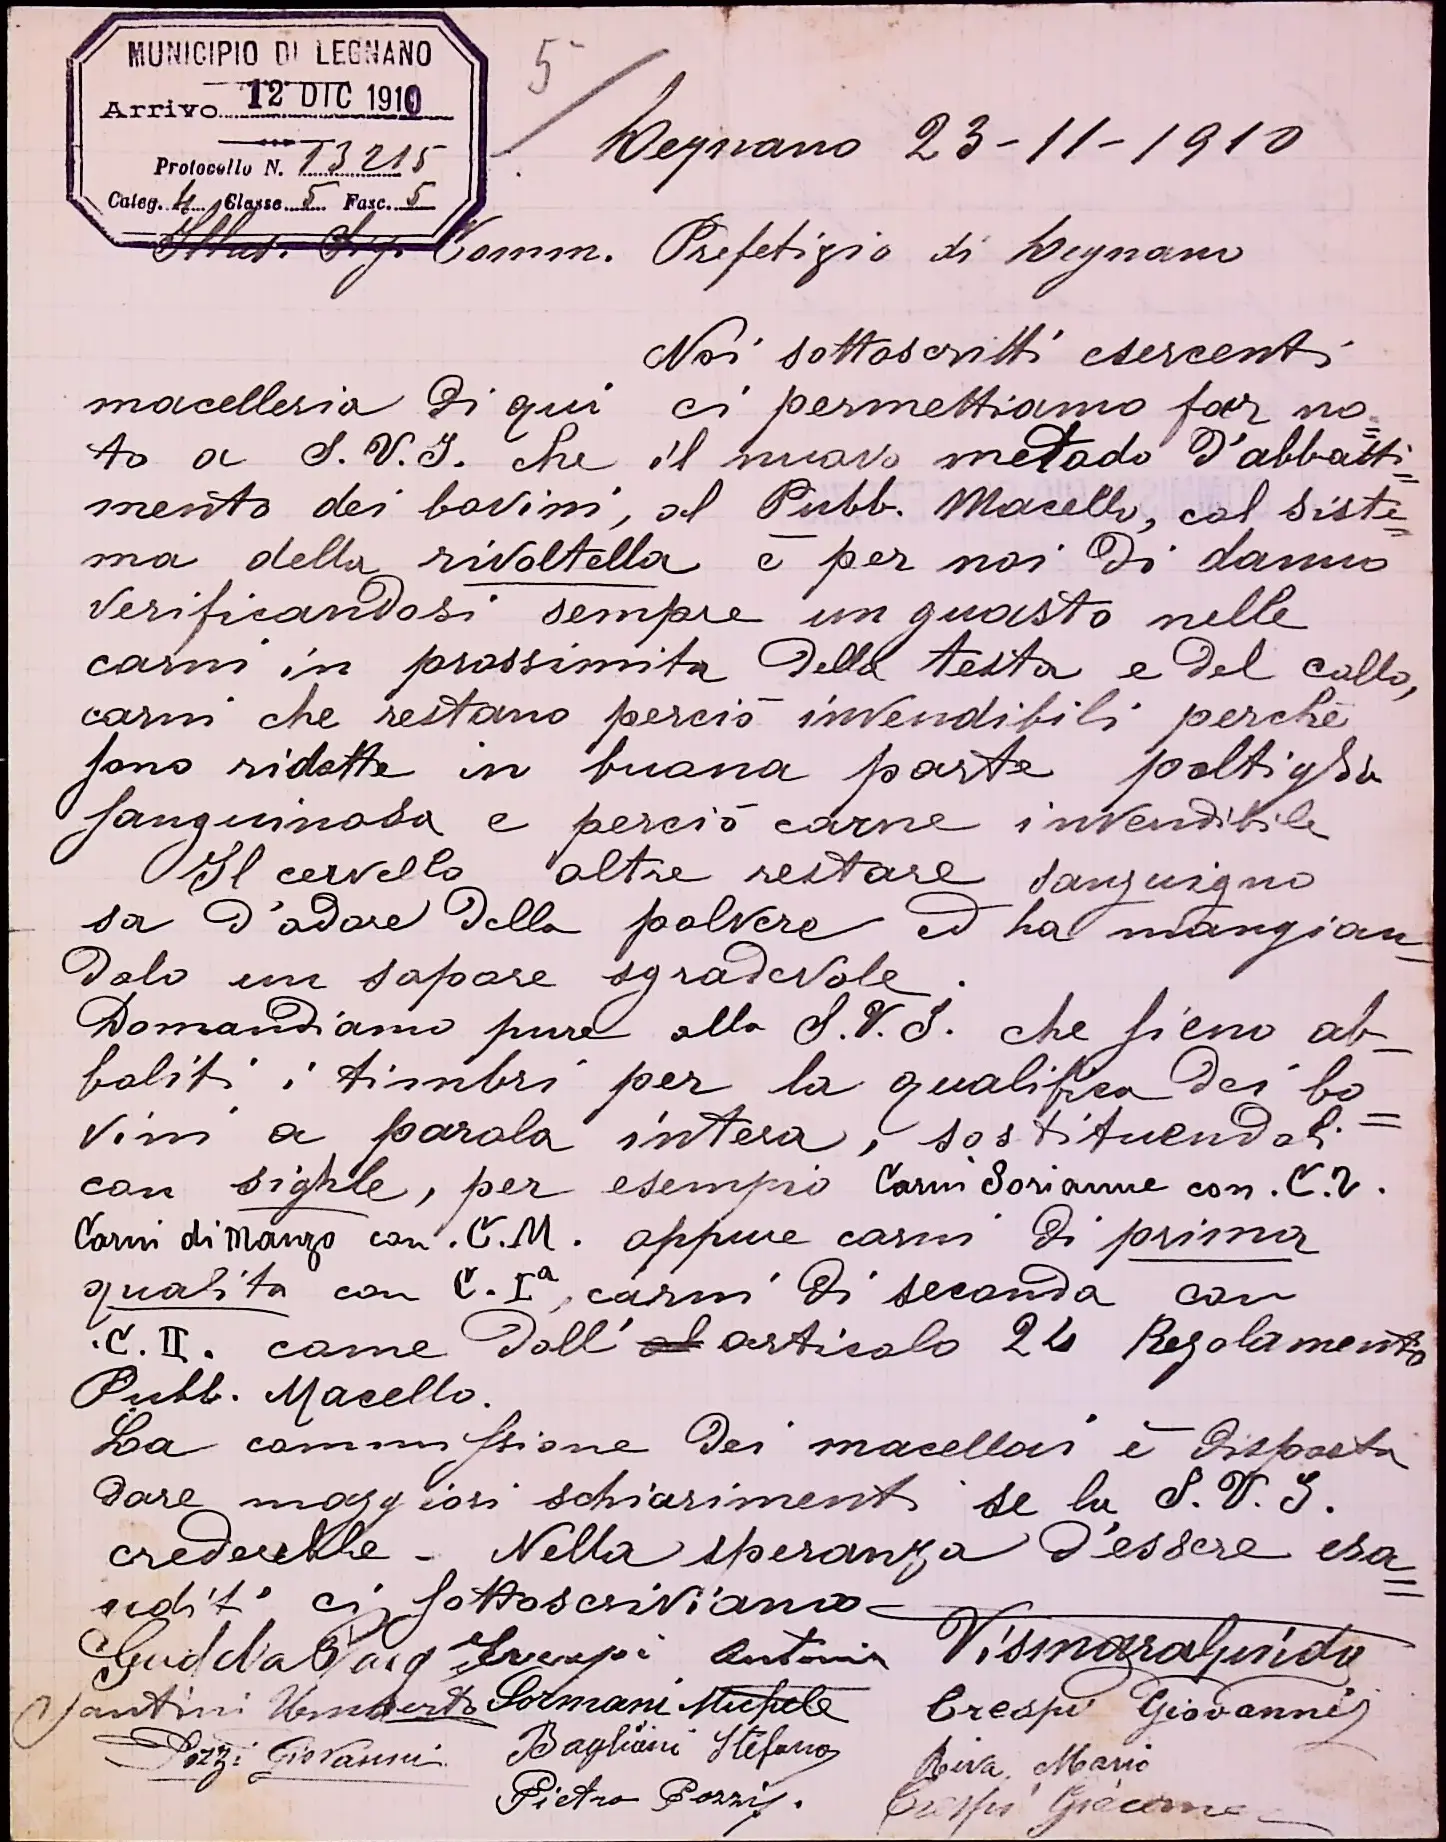 MUNICIPIO DI LEGNANO
Arrivo 12 DIC 1910
Protocollo N. 13215
Categ. 4 Classe 5 Fasc. 5
5
Legnano 23-11-1910
Illus. Sig. Comm. Prefetizio di Legnano
Noi sottoscritti esercenti
macelleria di qui ci permettiamo far no=
to a S.V.I. che il nuovo metodo d'abbatti=
mento dei bovini, al Pubb. Macello, col siste=
ma della rivoltella è per noi di danno
verificandosi sempre un guasto nelle
carni in prossimita della testa e del collo,
carni che restano perciò invendibili perchè
sono ridotte in buona parte poltiglia
sanguinosa e perciò carne invendibile
Il cervello oltre restare sanguigno
sa d'odore della polvere ed ha mangian-
dolo un sapore sgradevole.
Domandiamo pure alla S.V.I. che sieno ab-
boliti i timbri per la qualifica dei bo=
vini a parola intera, sostituendoli=
con sighle, per esempio Carni Sorianne con .C.V.
Carni di Manzo con .C.M. oppure carni di prima
qualita con C.Iª, carni di seconda con
.C.II. come dall' al articolo 24 Regolamento
Pubb. Macello.
La commissione dei macellai è disposta
dare maggiori schiarimenti se la S.V.I.
crederebbe - Nella speranza d'essere esa=
uditi ci sottoscriviamo
Crespi Antonio Vismara Guido
Santini Umberto Sormani Michele Crespi Giovanni
Pozzi Giovanni Bagliani Stefano Riva Mario
Pietro Pozzi. Crespi Giacomo